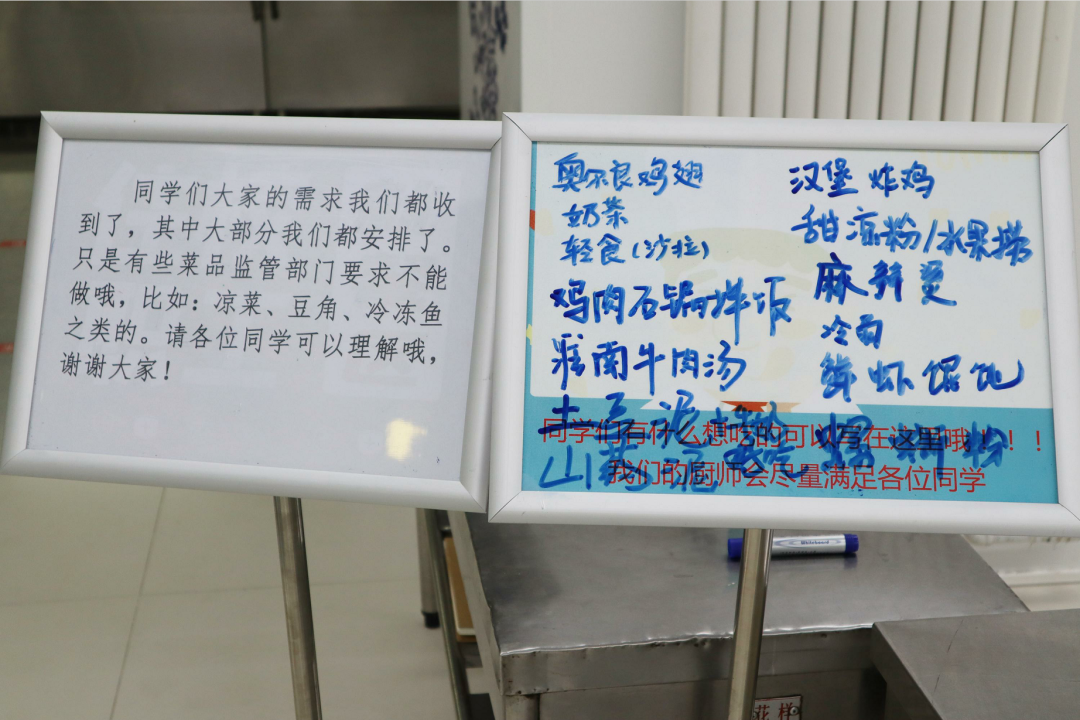 同学们大家的需求我们都收
到了，其中大部分我们都安排了。
只是有些菜品监管部门要求不能
做哦，比如：凉菜、豆角、冷冻鱼
之类的。请各位同学可以理解哦，
谢谢大家！
奥尔良鸡翅
奶茶
轻食(沙拉)
鸡肉石锅拌饭
淮南牛肉汤
土豆泥
山药泥
汉堡 炸鸡
甜凉粉/水果捞
麻辣烫
冷面
鲜虾馄饨
螺蛳粉
同学们有什么想吃的可以写在这里哦！！！
我们的厨师会尽量满足各位同学
Whiteboard
花样